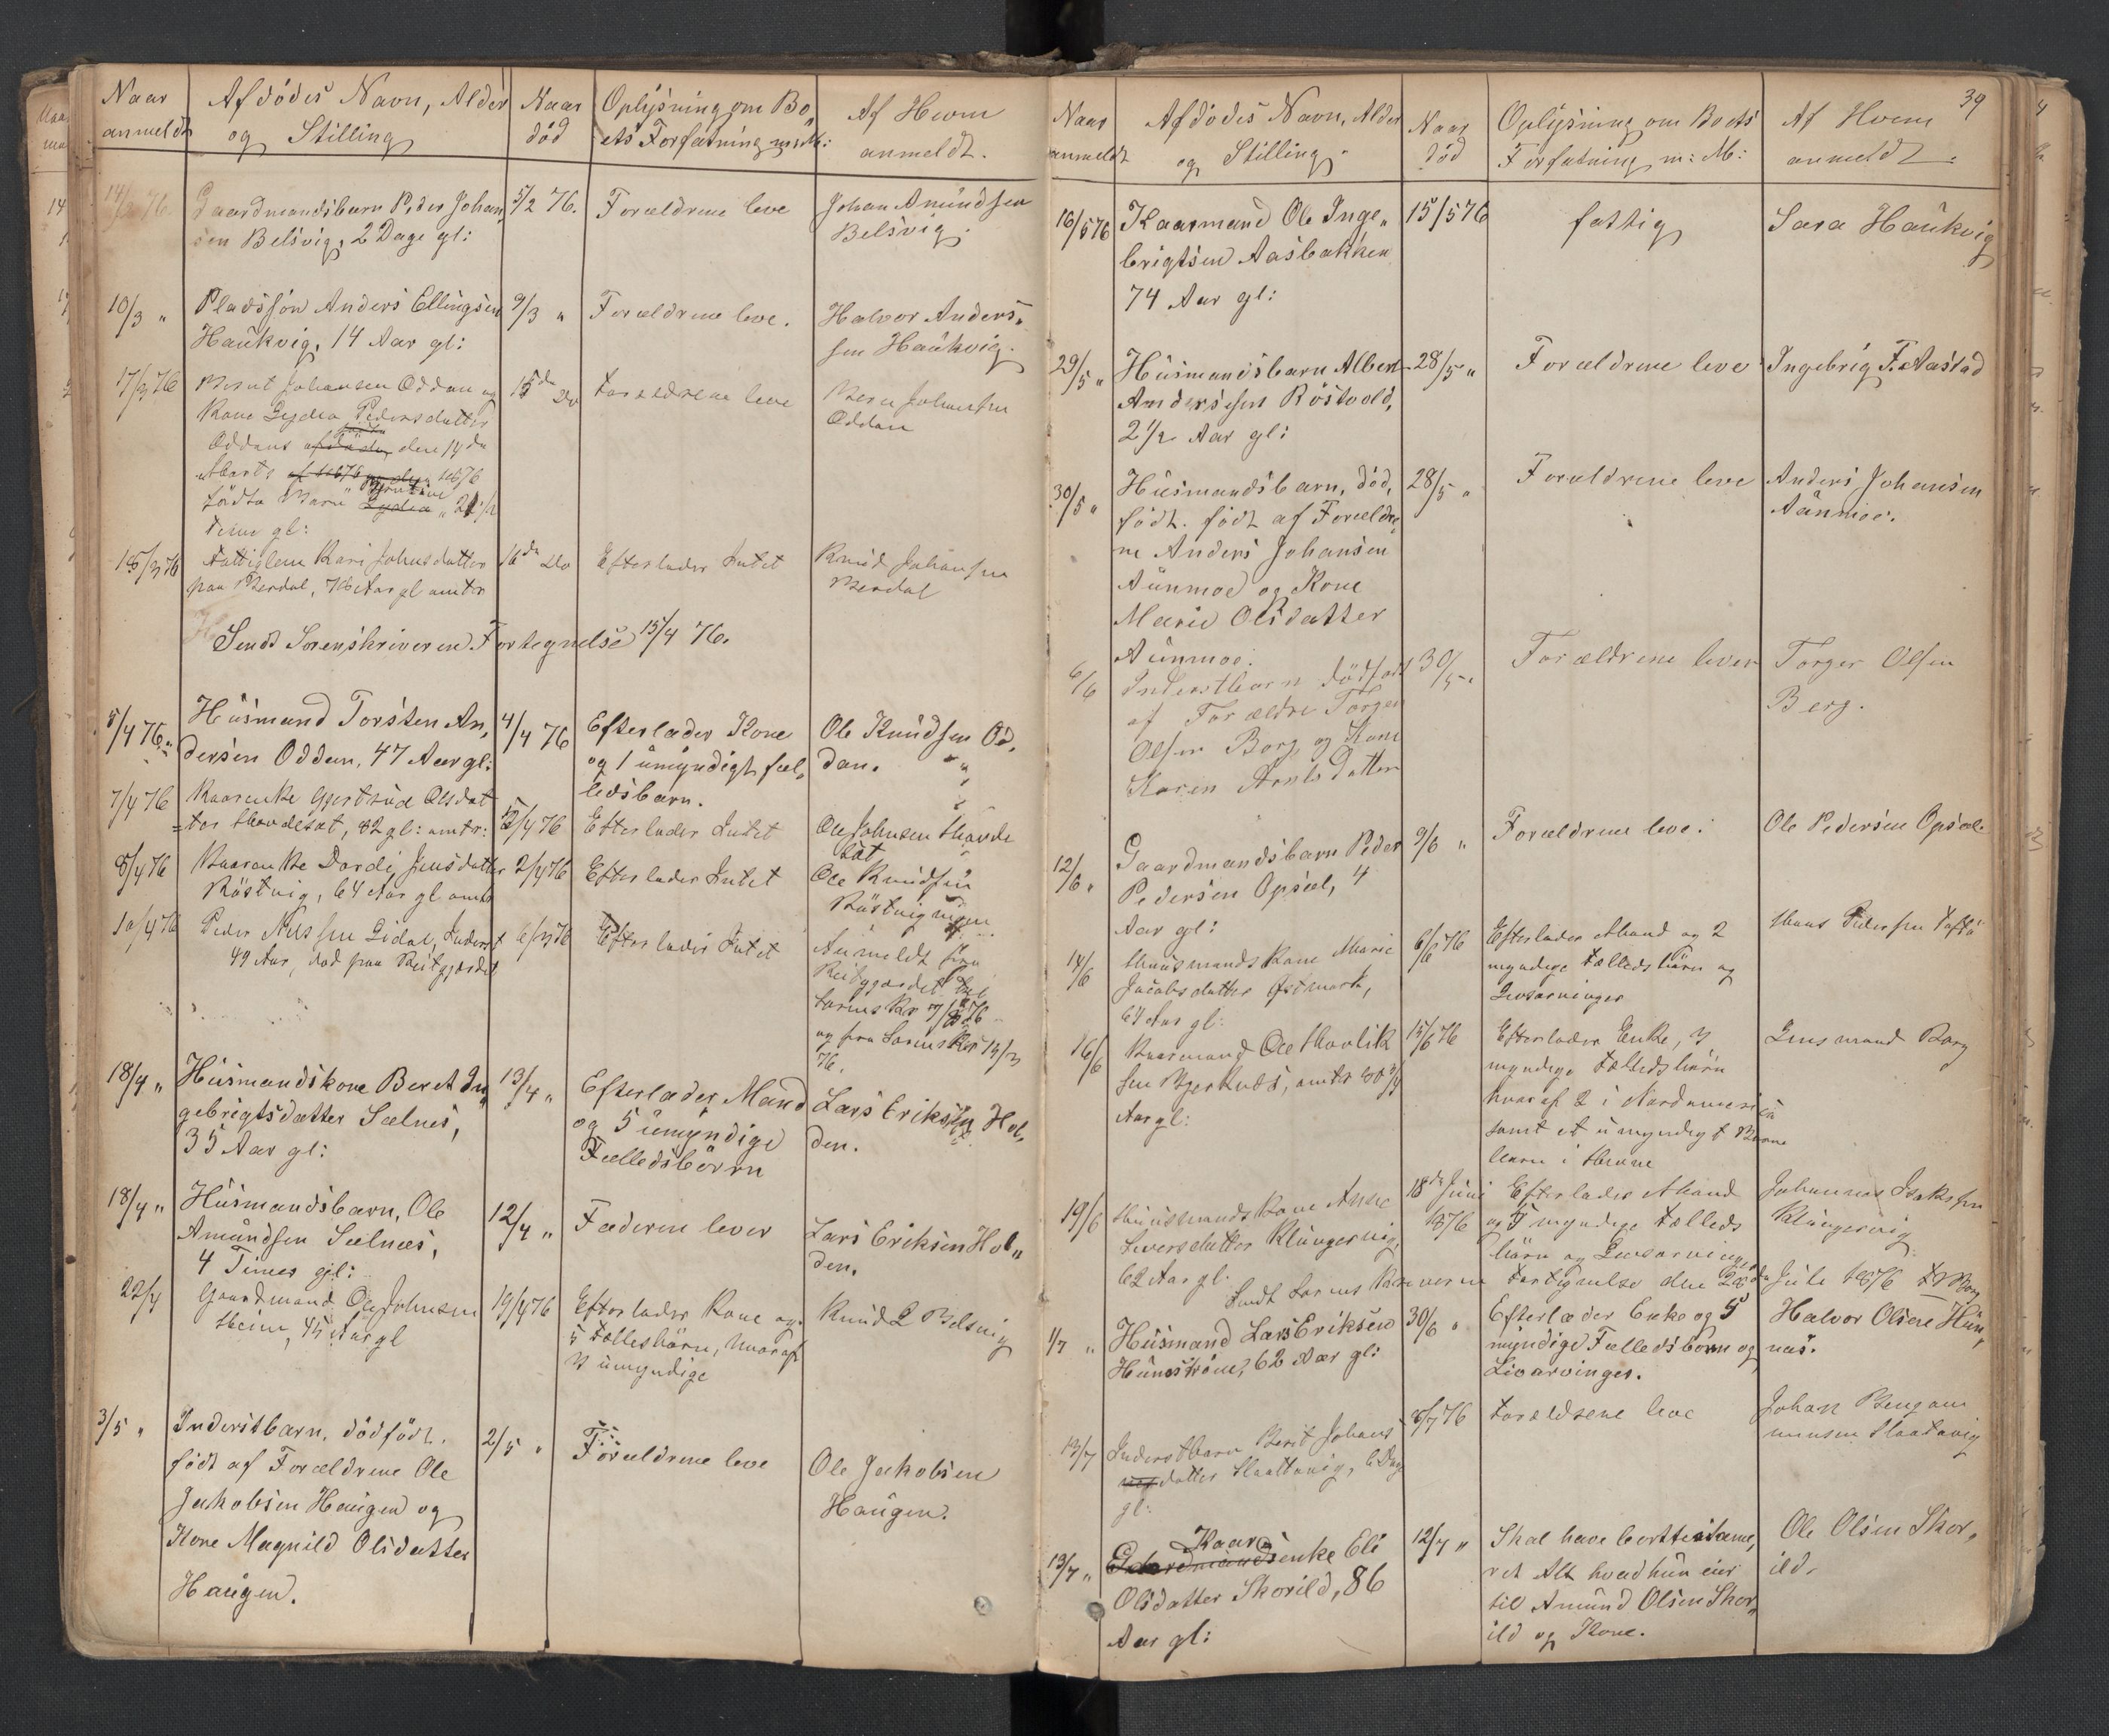 Naar anmeldt
Afdödes Navn, Alder og Stilling
Naar död
Oplysning om Boets Forfatning m: M:
Af Hvem anmeldt.
14/2 76.
Gaardmandsbarn Peder Johan„
sen Belsvig, 2 Dage gl:
5/2 76.
Forældrene leve
Johan Amundsen
Belsvig.
10/3 „
Pladssön Anders Ellingsen
Haukvig, 14 Aar gl:
9/3 „
Forældrene leve.
Halvor Anders„
sen Haukvig.
17/3 76
Bernt Johansen Oddan og
Kone Lydia Pedersdatter
Oddans den 14da
Marts 1876
födte Barn
Timer gl:
15da Do
Forældrene leve
Bern Johansen
Oddan
18/3 76
Fattiglem Kari Johnsdatter
paa Berdal, 76 Aar gl omtr
16da Do
Efterlader Intet
Knud Johansen
Berdal
Sendt Sorenskriveren Fortegnelse 15/4 76.
5/4 76 „
Husmand Torsten An„
dersen Oddan, 47 Aar gl:
4/4 76
Efterlader Kone
og 1 umyndigt fæl„
ledsbarn.
Ole Knudsen Od„
dan.
7/4 76
Kaarenke Gjertrud Olsdat
=ter Hovdesæt, 82 gl: omtr:
5/4 76
Efterlader Intet
Ole Johnsen Hovde
sæt
8/4 76
Kaarenke Dordi Jensdatter
Röstvig, 64 Aar gl omtr
2/4 76
Efterlader Intet
Ole Knudsen
Röstvig
10/4 76
Peder Nilssen Lidal, Inderst
49 Aar, död paa Reitgjærdet
6/3 76
Efterlader Intet
Anmeldt fra
Reitgjærdet til
Sorenskr
og fra Sorenskr 13/3
76.
18/4 „
Husmandskone Beret In„
gebrigtsdatter Sælnes,
35 Aar gl:
13/4 „
Efterlader Mand
og 5 umyndige
Fælledsbörn
Lars Eriksen Hol„
den.
18/4 „
Husmandsbarn, Ole
Amundsen Sælnæs,
4 Timer gl:
12/4 „
Faderen lever
Lars Eriksen Hol„
den.
22/4
Gaardmand Ole Johnsen
Heim, 45 Aar gl
19/4 76
Efterlader Kone og
5 Fællesbörn, hvoraf
3 umyndige
Knud L Belsvig
3/5 „
Inderstbarn, dödfödt.
födt af Forældrene Ole
Jakobsen Haugen og
Kone Magnild Olsdatter
Haugen.
2/5 „
Forældrene leve
Ole Jakobsen
Haugen.
39
Naar anmeldt
Afdödes Navn, Alder og Stilling.
Naar död
Oplysning om Boets Forfatning m: M:
Af Hvem anmeldt.
16/5 76
Kaarmand Ole Inge„
brigtsen Aasbakken
74 Aar gl:
15/5 76
fattig
Sara Haukvig
29/5 „
Husmandsbarn Albert
Anderssen Röstvold,
2 1/2 Aar gl:
28/5 „
Forældrene leve
Ingebrig F. Aastad
30/5 „
Husmandsbarn, död„
födt. födt af Forældre„
ne Anders Johansen
Aunmoe og Kone
Marie Olsdatter
Aunmoe.
28/5 „
Forældrene leve
Anders Johansen
Aunmoe.
6/6
Inderstbarn dödfödt
af Forældre Torger
Olsen Berg og Kone
Karen Arntsdatter
30/5 „
Forældrene lever
Torger Olsen
Berg.
12/6 „
Gaardmandsbarn Peder
Pedersen Opsal, 4
Aar gl:
9/6 „
Forældrene leve.
Ole Pedersen Opsal
14/6
Huusmandskone Marie
Jacobsdatter Østmark,
64 Aar gl:
6/6 76
Efterlader Mand og 2
myndige Fælledsbörn og
Livsarvinger
Hans Pedersen
16/6
Kaarmand Ole
omtr
Aar gl:
15/6 76
Efterlader Enke, 3
myndige Fælledsbörn
hvoraf 2 i Nordamerica
samt et umyndigt Barne
barn i Hevne
Lensmand Borg
19/6
Huusmandskone Anne
Siversdatter Klungervig,
62 Aar gl:
18de Juni
1876
Efterlader Mand
og 5 myndige Fælleds
börn og Livsarvinger
Johannes Isaksen
Klungervig
Sendt Sorenskriveren Fortegnelse den Juli 1876 Borg
1/7 „
Husmand Lars Eriksen
62 Aar gl:
30/6 „
Efterlader Enke og 5
myndige Fælledsbörn og
Livarvinger.
Halvor Olsen Hun„
næs.
13/7
Inderstbarn Berit Johans
datter Slaattavig, 6 Dage
gl:
8/7 76
Forældrene leve
Johan Bengam
minsen Slaatavig
13/7 „
Kaar„
Gaardmandsenke Eli
Olsdatter Skorild, 86
Aar gl:
12/7 „
Skal have borttestame„
ret Alt hvad hun eier
til Amund Olsen Skor„
ild og Kone.
Ole Olsen Skor„
ild.